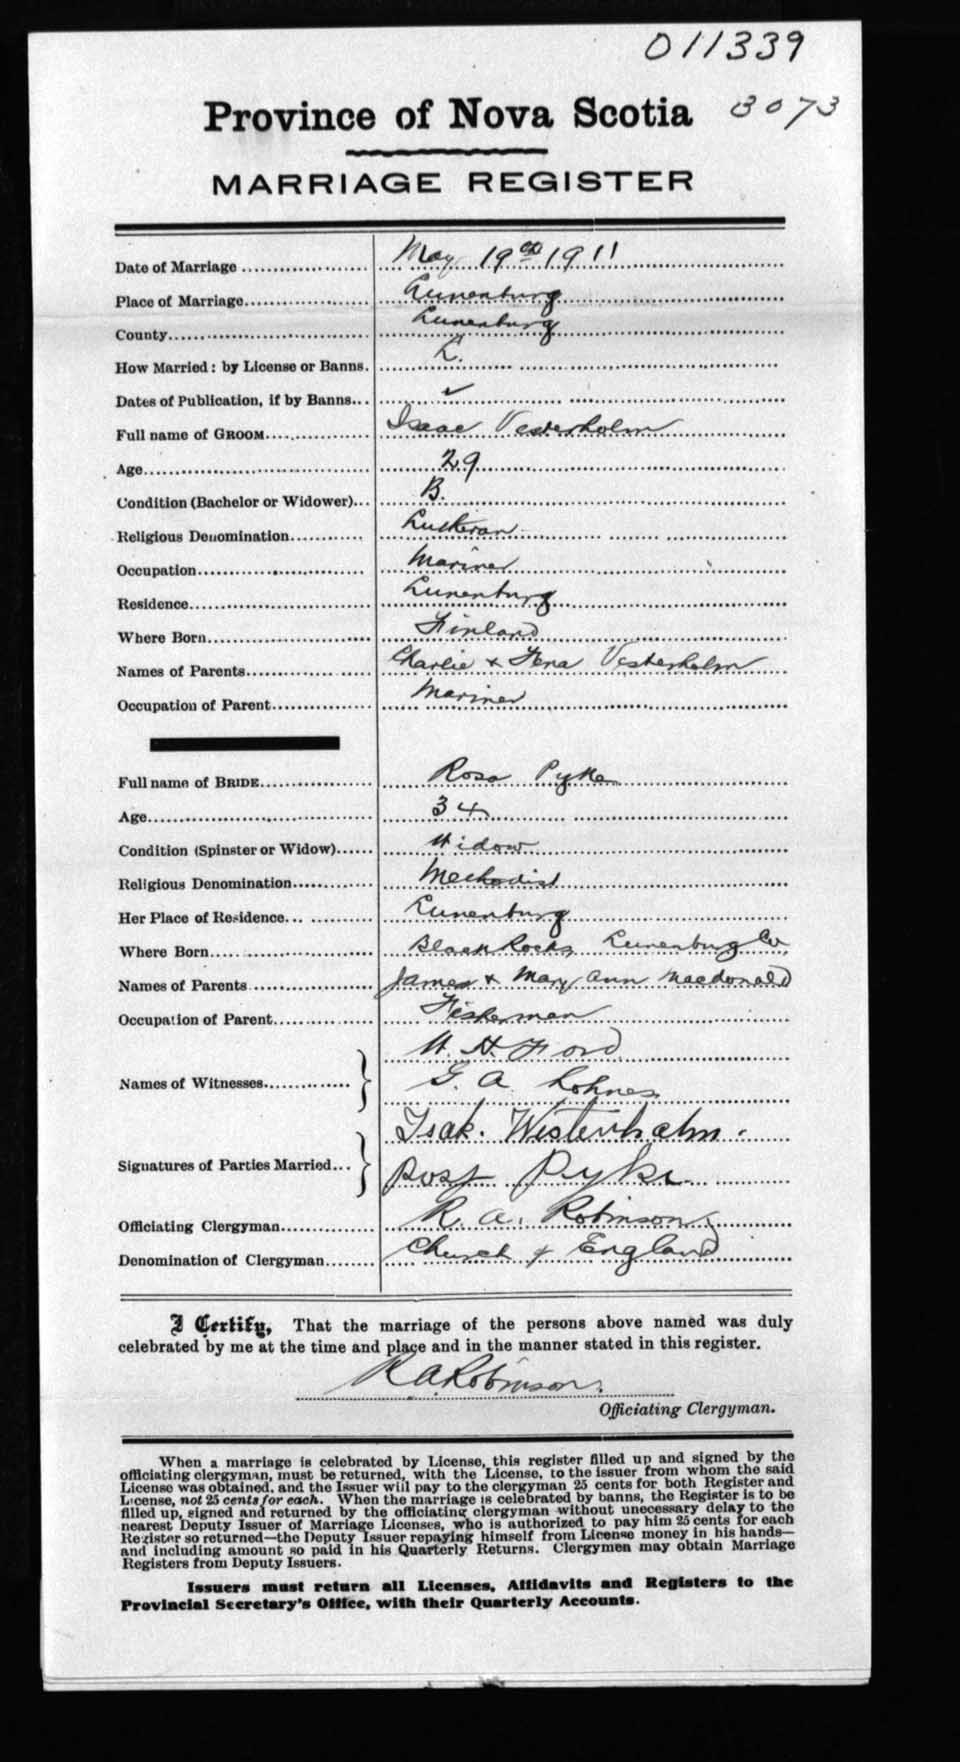 011339
Province of Nova Scotia 3073
MARRIAGE REGISTER
Date of Marriage .................... May 19th 1911
Place of Marriage .................... Lunenburg
County .................... Lunenburg
How Married: by License or Banns. L.
Dates of Publication, if by Banns... ✓
Full name of GROOM .................... Isaac Vesterholm
Age .................... 29
Condition (Bachelor or Widower)... B.
Religious Denomination............ Lutheran
Occupation .................... Mariner
Residence .................... Lunenburg
Where Born .................... Finland
Names of Parents .................... Charlie & Fena Vesterholm
Occupation of Parent............... Mariner
Full name of BRIDE .................... Rosa Pyke
Age .................... 34
Condition (Spinster or Widow)...... Widow
Religious Denomination............. Methodist
Her Place of Residence... ............ Lunenburg
Where Born .................... Black Rocks Lunenburg Co.
Names of Parents .................... James & Mary Ann Macdonald
Occupation of Parent............... Fisherman
W. H. Ford
Names of Witnesses.............. } G. A. Lohnes
Isak. Westerholm.
Signatures of Parties Married... } Pyke
Officiating Clergyman.............. R. A. Robinson
Denomination of Clergyman........ Church of England
I Certify, That the marriage of the persons above named was duly
celebrated by me at the time and place and in the manner stated in this register.
R A Robinson.
Officiating Clergyman.
When a marriage is celebrated by License, this register filled up and signed by the
officiating clergyman, must be returned, with the License, to the issuer from whom the said
License was obtained, and the Issuer will pay to the clergyman 25 cents for both Register and
License, not 25 cents for each. When the marriage is celebrated by banns, the Register is to be
filled up, signed and returned by the officiating clergyman without unnecessary delay to the
nearest Deputy Issuer of Marriage Licenses, who is authorized to pay him 25 cents for each
Register so returned—the Deputy Issuer repaying himself from License money in his hands—
and including amount so paid in his Quarterly Returns. Clergymen may obtain Marriage
Registers from Deputy Issuers.
Issuers must return all Licenses, Affidavits and Registers to the
Provincial Secretary's Office, with their Quarterly Accounts.